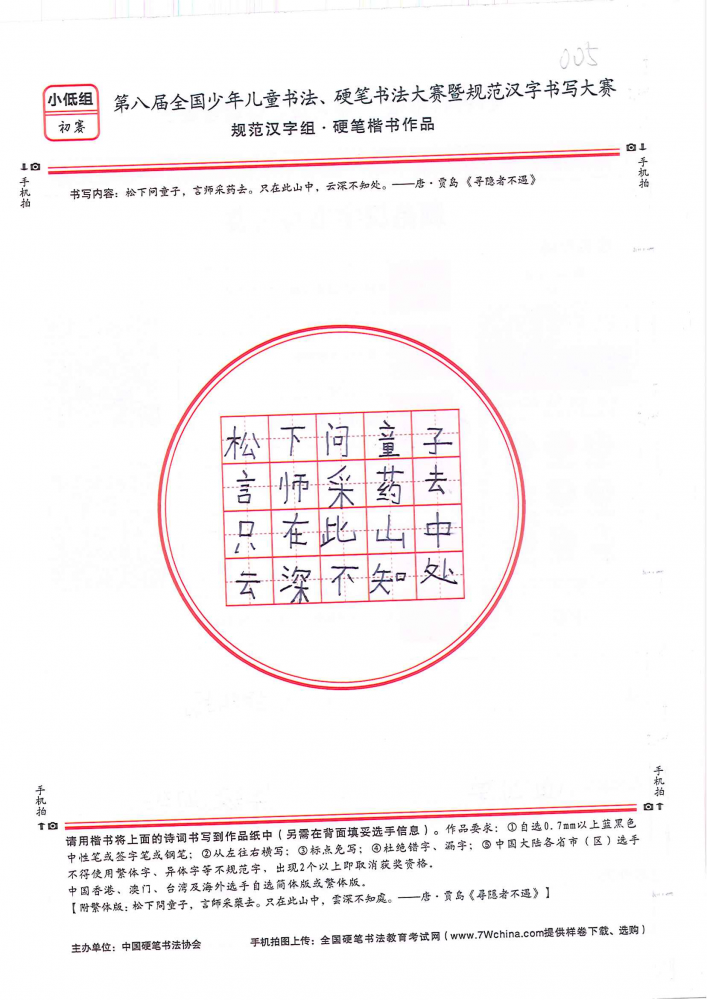 005
小低组
初赛
第八届全国少年儿童书法、硬笔书法大赛暨规范汉字书写大赛
规范汉字组·硬笔楷书作品
手机拍
手机拍
书写内容：松下问童子，言师采药去。只在此山中，云深不知处。——唐·贾岛《寻隐者不遇》
松下问童子
言师采药去
只在此山中
云深不知处
手机拍
手机拍
请用楷书将上面的诗词书写到作品纸中（另需在背面填妥选手信息）。作品要求：①自选0.7mm以上蓝黑色
中性笔或签字笔或钢笔；②从左往右横写；③标点免写；④杜绝错字、漏字；⑤中国大陆各省市（区）选手
不得使用繁体字、异体字等不规范字，出现2个以上即取消获奖资格。
中国香港、澳门、台湾及海外选手自选简体版或繁体版。
【附繁体版：松下問童子，言師采藥去。只在此山中，雲深不知處。——唐·贾岛《寻隐者不遇》】
主办单位：中国硬笔书法协会
手机拍图上传：全国硬笔书法教育考试网（www.7Wchina.com提供样卷下载、选购）